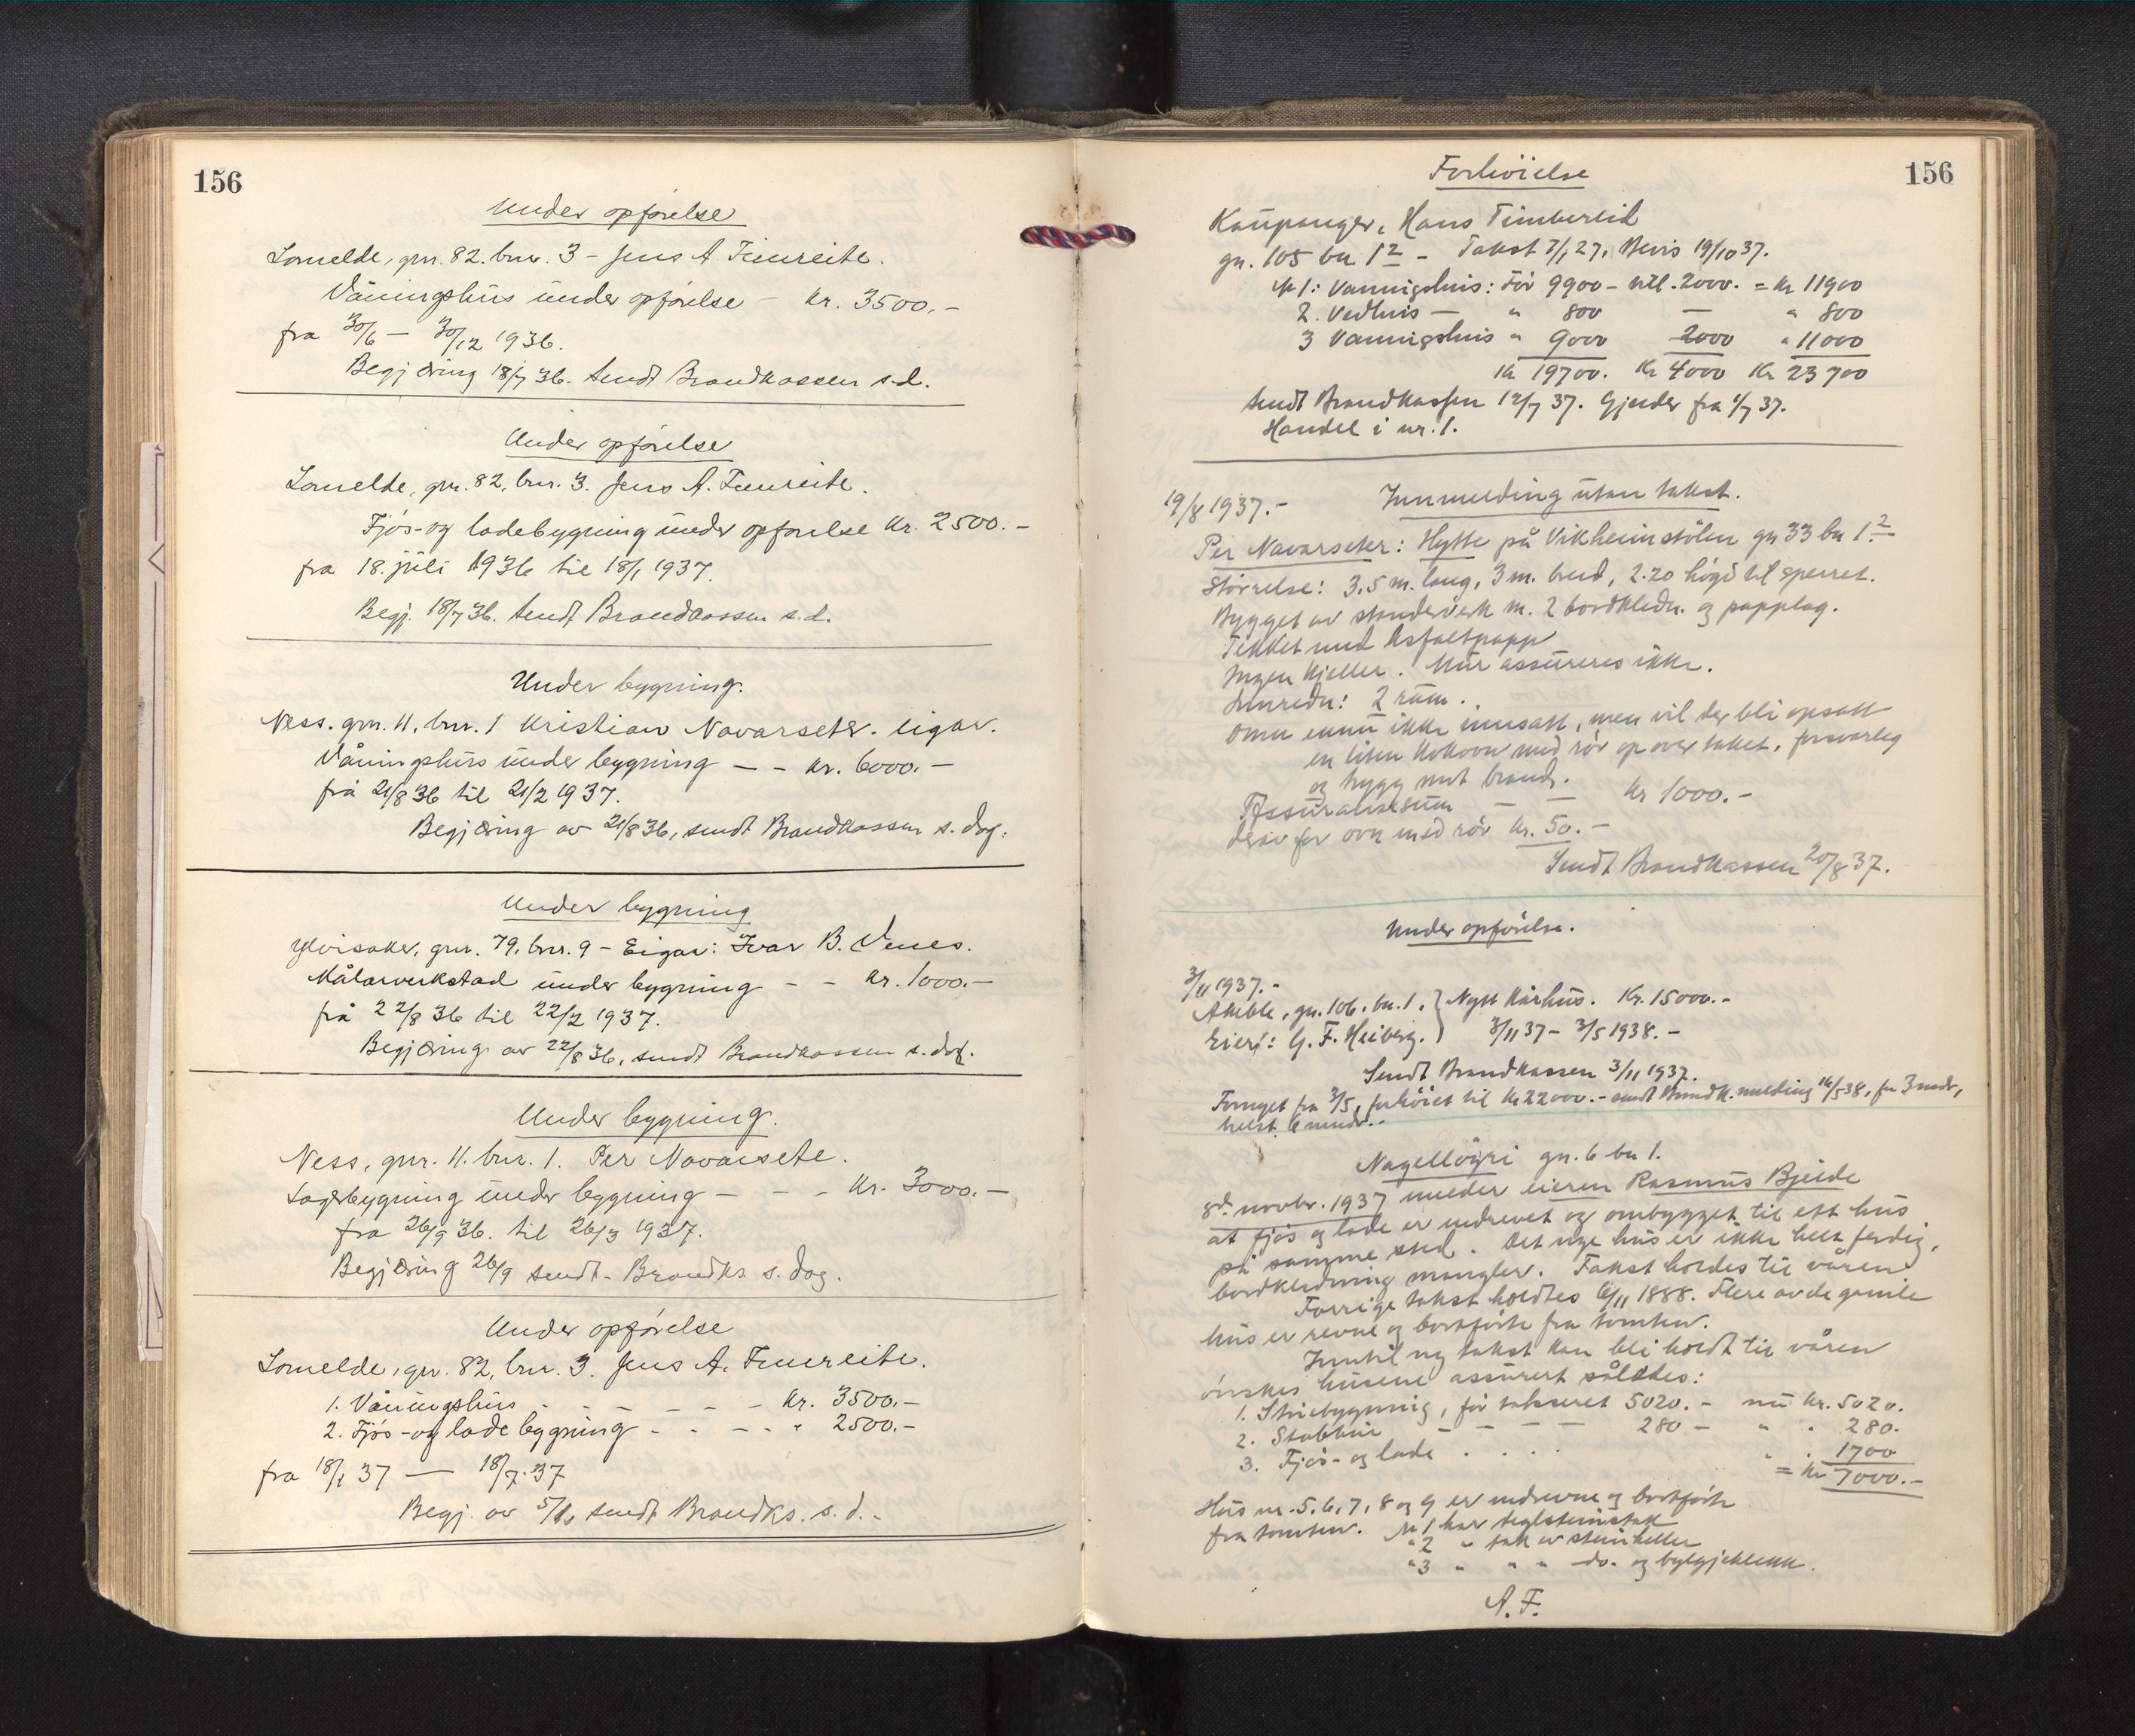 156
Under opførelse
Lomelde, gnr. 82. bnr. 3 - Jens A Timreite.
Våningshus under opførelse - kr. 3500.-
fra 30/6 - 30/12 1936.
Begjæring 18/7 36. Sendt Brandkassen s.d.
Under opførelse
Lomelde, gnr. 82, bnr. 3. Jens A. Timreite.
Fjós- og ladebygning under opførelse kr. 2500.-
fra 18. juli 1936 til 18/1 1937.
Begj. 18/7 36. Sendt Brandkassen s.d.
Under bygning.
Ness. gnr. 11, bnr. 1 Kristian Navarsete. eigar.
Våningshus under bygning - - kr. 6000.-
frå 21/8 36 til 21/2 1937.
Begjæring av 21/8 36, sendt Brandkassen s. dag.
Under bygning
Ylvisaker, gnr. 79, bnr. 9 - Eigar: Ivar B. Venes.
Målarverkstad under bygning - - kr. 1000.-
frå 22/8 36 til 22/2 1937.
Begjæring av 22/8 36, sendt Brandkassen s. dag.
Under bygning.
Ness, gnr. 11. bnr. 1. Per Navarsete.
Lagerbygning under bygning - - - kr. 3000.-
fra 26/9 36. til 26/3 1937.
Begjæring 26/9 sendt Brandks s. dag.
Under opførelse
Lomelde, gnr. 82, bnr. 3. Jens A. Timreite.
1. Våningshus - - - - - kr. 3500.-
2. Fjós- og ladebygning - - - - " 2500.-
fra 18/1 37 - 18/7 37
Begj. av 5/1, sendt Brandks. s. d.-
156
Forhöielse
Kaupanger, Hans Timbereid
gn. 105 bn 12 - Takst 7/1 27, Bevis 19/10 37.
Nr 1: Vanningshus: För 9900 - till. 2000. = kr 11900
2. Vedhus - " 800 - " 800
3 Vanningshus " 9000 2000 " 11000
Kr 19700. Kr 4000 Kr 23700
Sendt Brandkassen 12/7 37. Gjelder fra 1/7 37.
Handel i nr. 1.
19/8 1937.- Innmelding utan takst.
Per Navarseter: Hytte på Vikheimstölen gn 33 bn 12
Störrelse: 3,5 m. lang, 3 m. breid, 2.20 högd til sperret.
Bygget av standerverk m. 2 bordkledn. og papplag.
Tekket med Asfaltpapp
Ingen kjeller. Mur assureres ikke.
Innredn: 2 rum.
Omn ennu ikke innsatt, men vil der bli opsatt
en liten kokovn med rör op over taket, forsvarleg
og trygg mot brand.
Assuransesum - - kr 1000.-
derav for ovn med rör kr. 50.-
Sendt Brandkassen 20/8 37.
Under opförelse.
3/11 1937.-
Amble, gn. 106. bn. 1. } Nytt Kårhus. Kr. 15000.-
Eier: G. F. Heiberg. } 3/11 37 - 3/5 1938.-
Sendt Brandkassen 3/11 1937.
Fornyet fra 3/5, forhöiet til kr 22000.- sendt Brandk. melding 16/5 38, for 3 mndr,
helst 6 mndr.-
Nagellöyri gn. 6 bn 1.
8d. novbr. 1937 melder eieren Rasmus Bjelde
at fjös og lade er nedrevet og ombygget til ett hus
på samme sted. Det nye hus er ikke helt ferdig,
bordkledning mangler. Takst holdes til våren
Forrige takst holdtes 6/11 1888. Flere av de gamle
hus er revne og bortförte fra tomten.
Inntil ny takst kan bli holdt til våren
önskes husene assurert således:
1. Stuebygning, för taksert 5020.- nu kr. 5020.
2. Stabbur - - - - 280 - " . 280.
3. Fjös- og lade . . . . " . 1700
= Kr 7000.-
Hus nr. 5, 6, 7, 8 og 9 er nedrevne og bortförte
fra tomten. Nr 1 har teglsteinstak
" 2 " tak av steinheller
" 3 " " " do. og bylgjeblekk.
A. F.